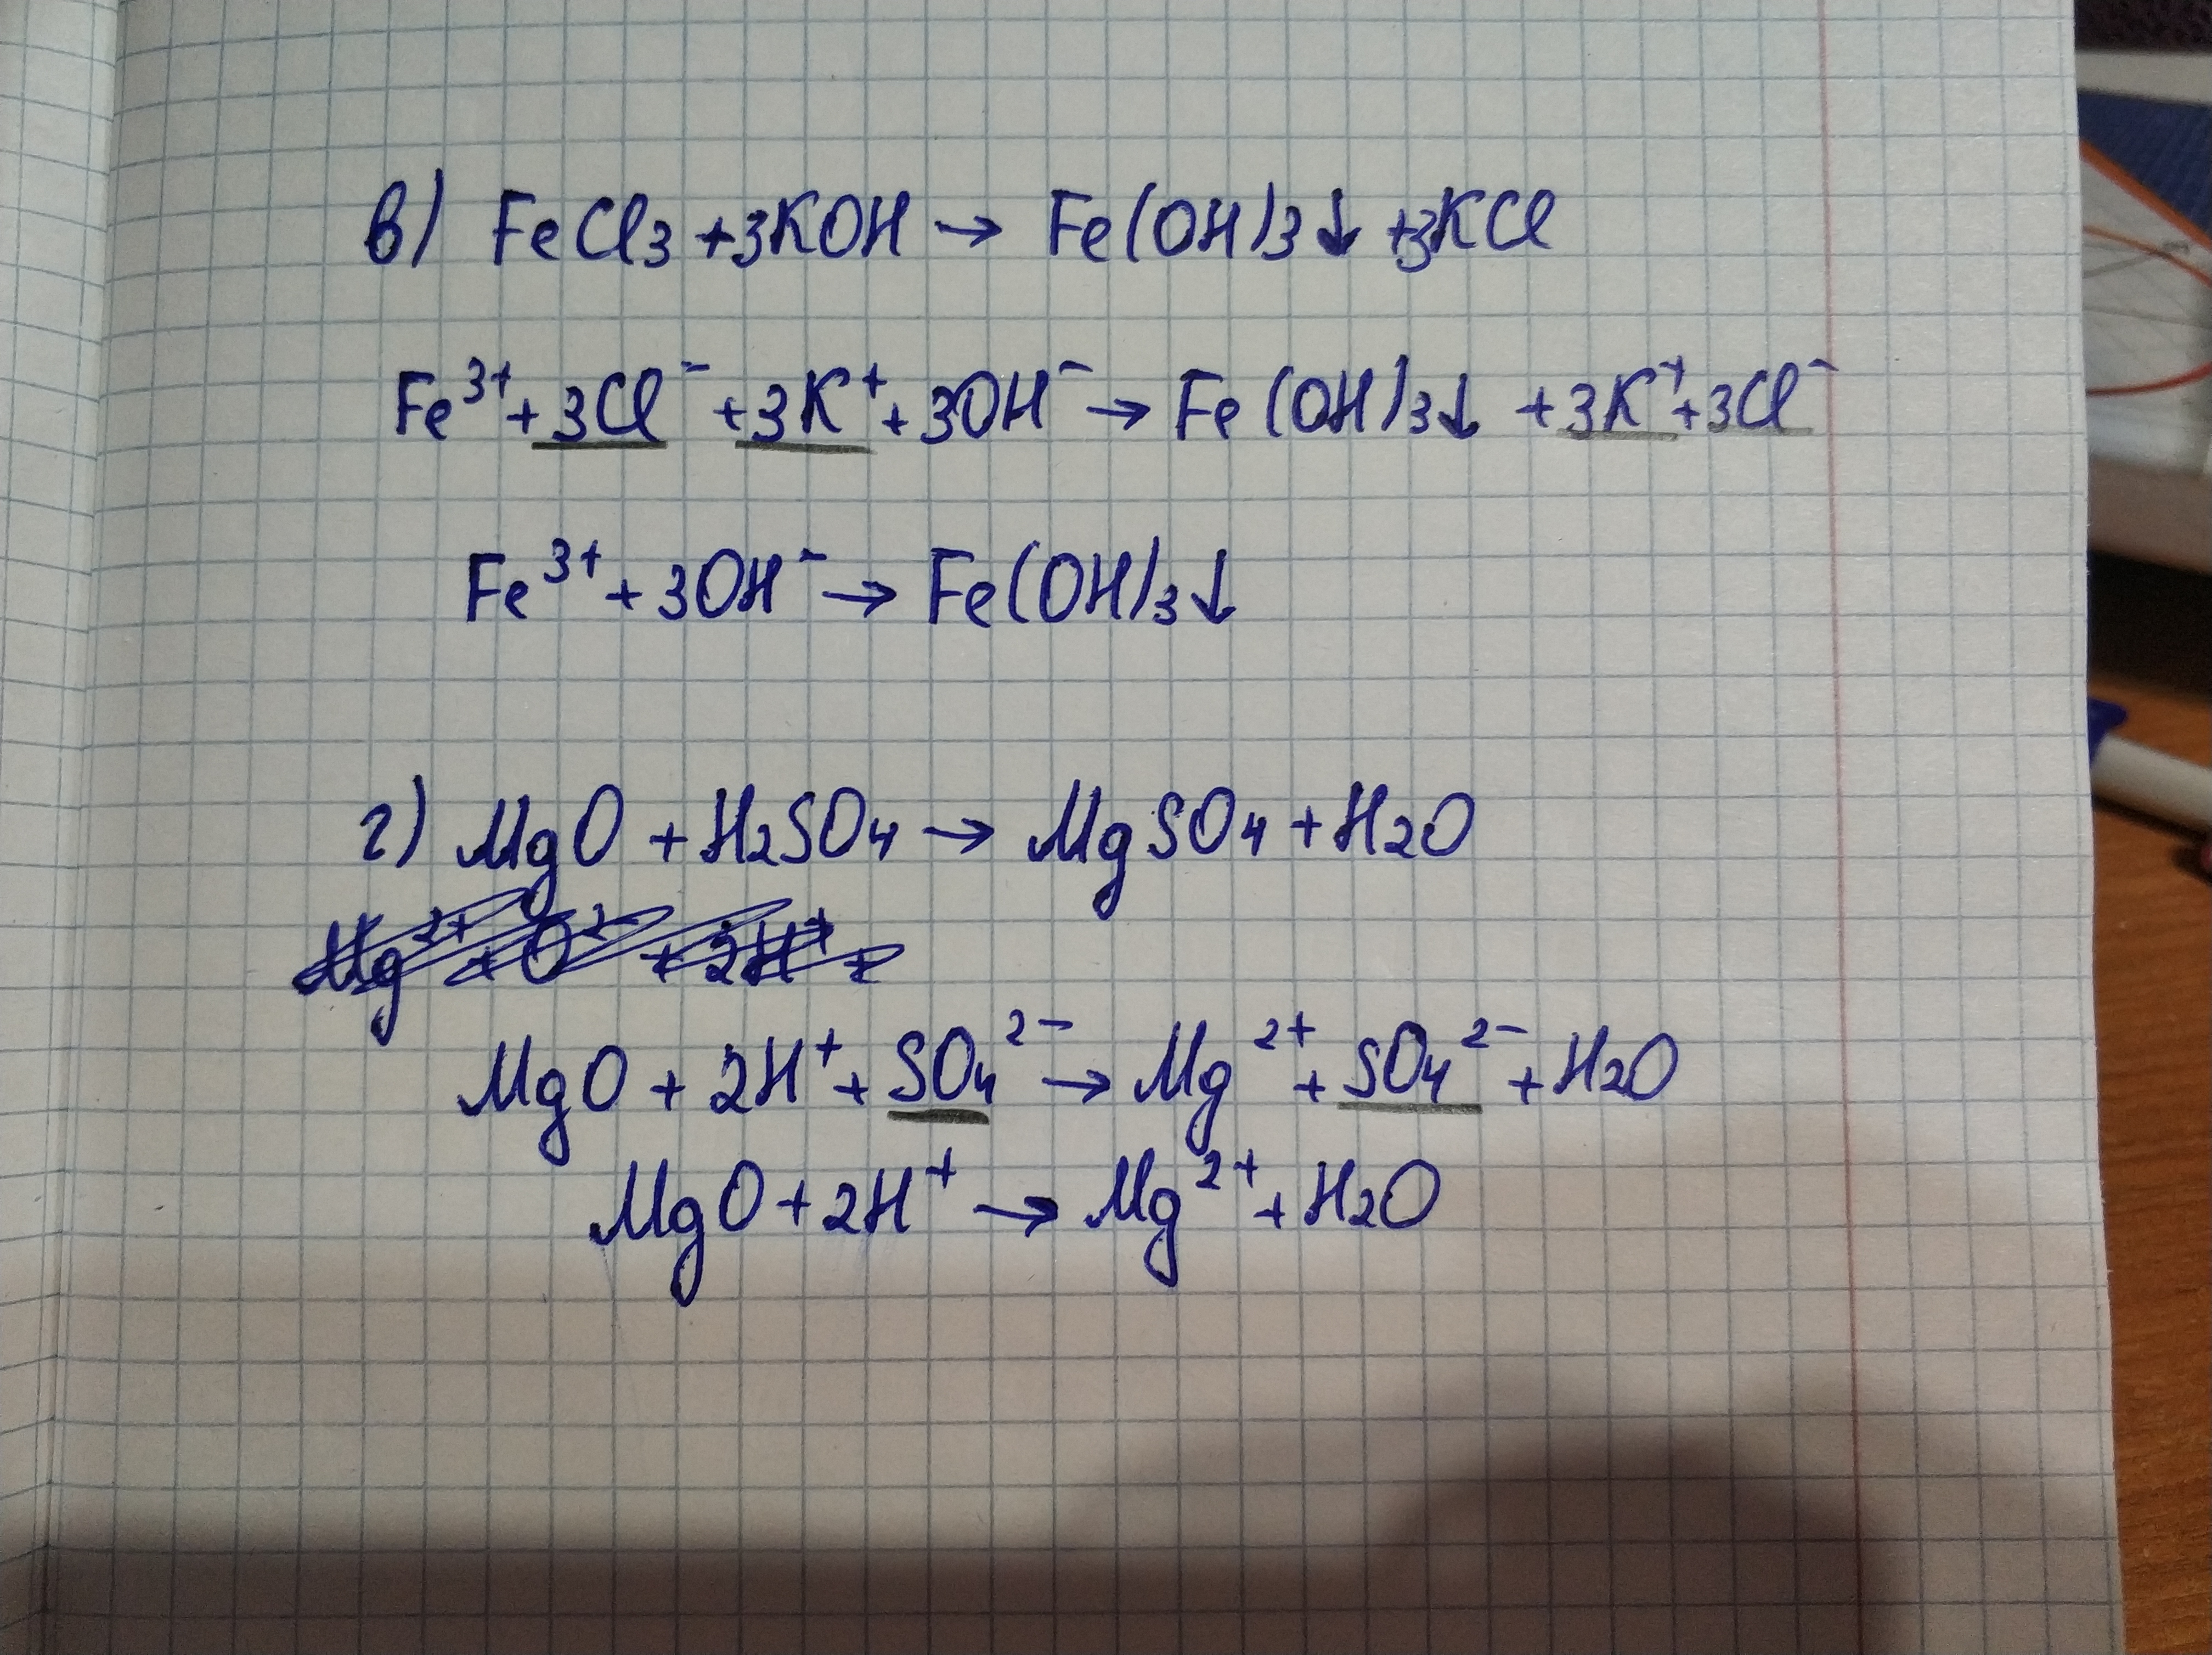 в) FeCl₃ + 3KOH → Fe(OH)₃↓ + 3KCl
Fe³⁺ + 3Cl⁻ + 3K⁺ + 3OH⁻ → Fe(OH)₃↓ + 3K⁺ + 3Cl⁻
Fe³⁺ + 3OH⁻ → Fe(OH)₃↓
г) MgO + H₂SO₄ → MgSO₄ + H₂O
Mg²⁺ + O²⁻ + 2H⁺ +
MgO + 2H⁺ + SO₄²⁻ → Mg²⁺ + SO₄²⁻ + H₂O
MgO + 2H⁺ → Mg²⁺ + H₂O